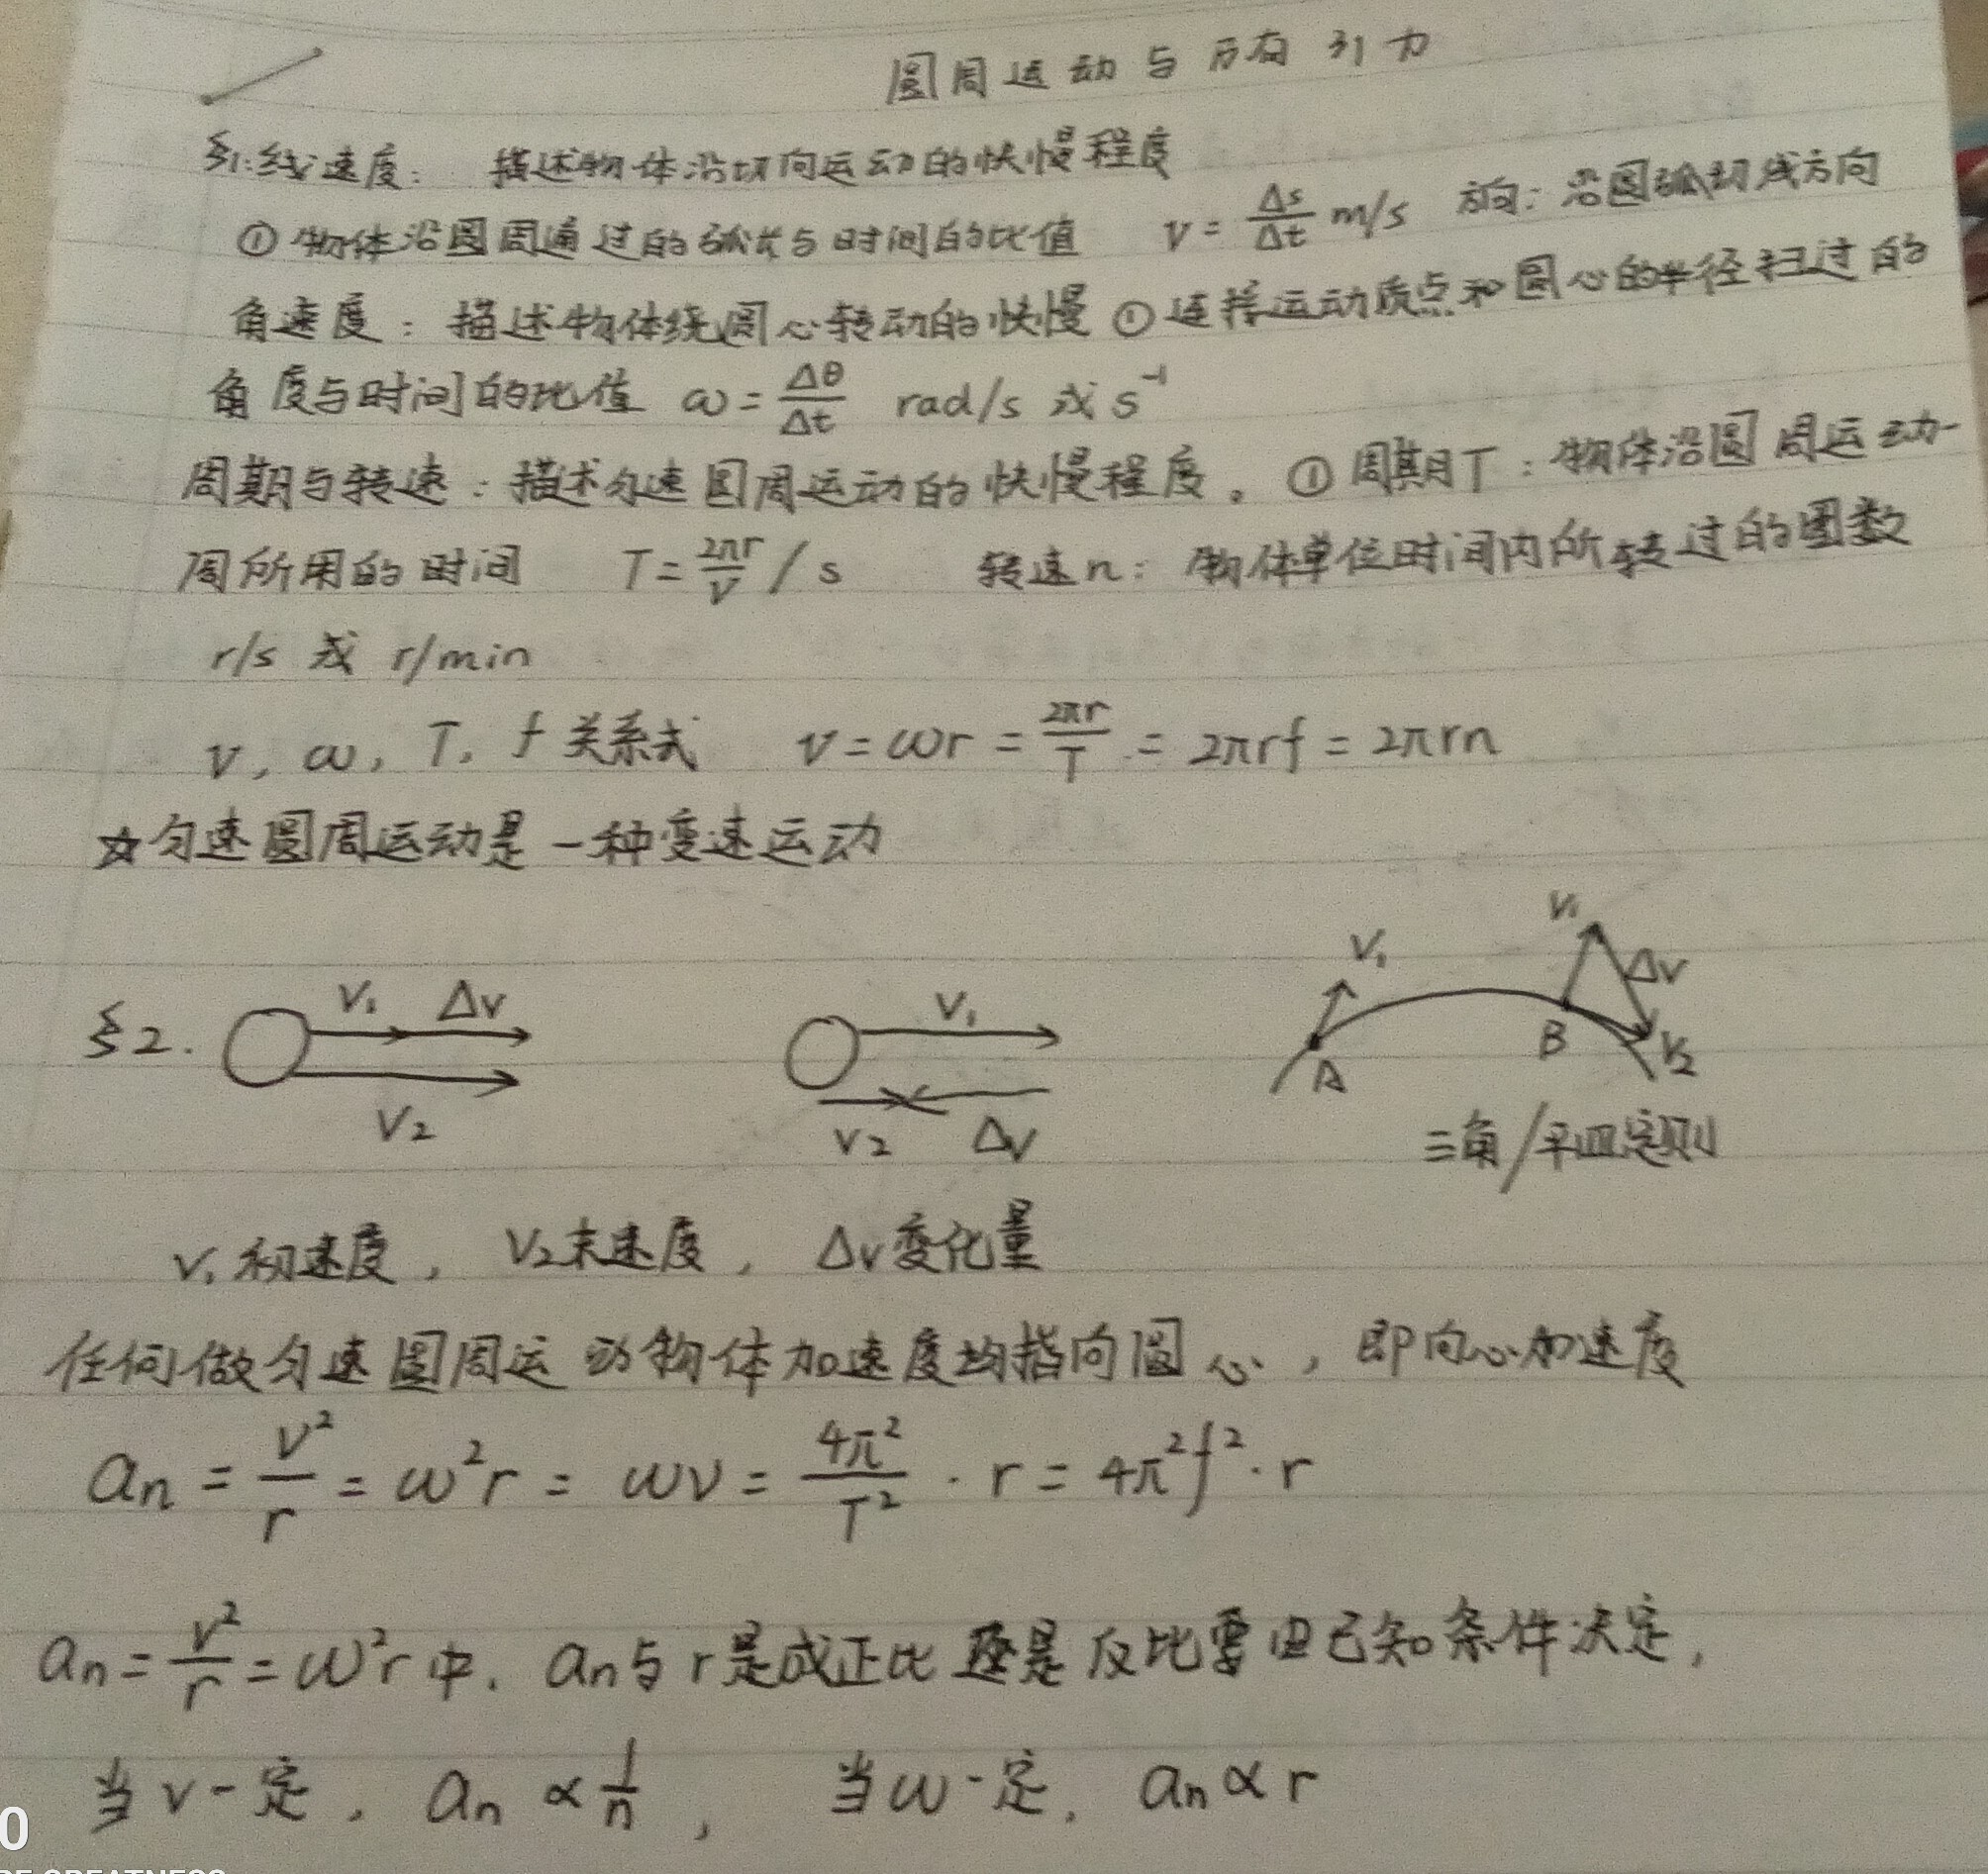 圆周运动与万有引力
§1:线速度: 描述物体沿切向运动的快慢程度
① 物体沿圆周通过的弧长与时间的比值 v = Δs/Δt m/s 方向: 沿圆弧切线方向
角速度: 描述物体绕圆心转动的快慢 ① 连接运动质点和圆心的半径扫过的
角度与时间的比值 ω = Δθ/Δt rad/s 或 s⁻¹
周期与转速: 描述匀速圆周运动的快慢程度。 ① 周期T: 物体沿圆周运动一
周所用的时间 T = 2πr/v / s 转速n: 物体单位时间内所转过的圈数
r/s 或 r/min
v, ω, T, f 关系式 v = ωr = 2πr/T = 2πrf = 2πrn
☆匀速圆周运动是一种变速运动
§2.
V₁ Δv
V₂
V₁
V₂ Δv
V₁ V₁ Δv
A B V₂
三角/平四定则
V₁初速度, V₂末速度, Δv变化量
任何做匀速圆周运动物体加速度均指向圆心, 即向心加速度
aₙ = v²/r = ω²r = ωv = 4π²/T² · r = 4π²f² · r
aₙ = v²/r = ω²r 中, aₙ与r是成正比还是反比需由已知条件决定,
当v一定, aₙ ∝ 1/n, 当ω一定, aₙ ∝ r
0